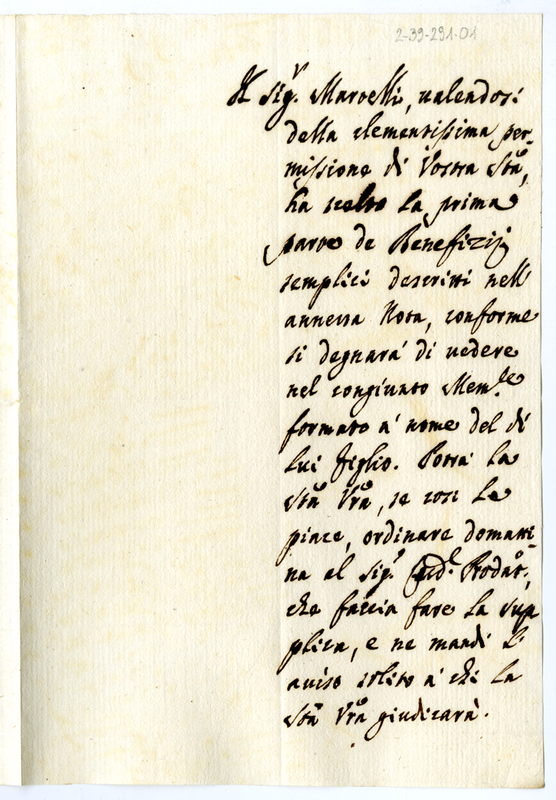 2-39-291-01
Il Sig.r Marcelli, ualendosi
della clementissima per-
missione di Vostra Stà,
ha scelto la prima
parte de Benefizij
semplici descritti nell'
annessa Nota, conforme
si degnarà di uedere
nel congiunto Mem.le
formato à nome del di
lui figlio. Potrà la
Stà Vrà, se così le
piace, ordinare domatti-
na al Sig.r Card.l Prodat.o,
che faccia fare la sup
plica, e ne mandi l'
auiso solito à chi la
Stà Vrà giudicarà.